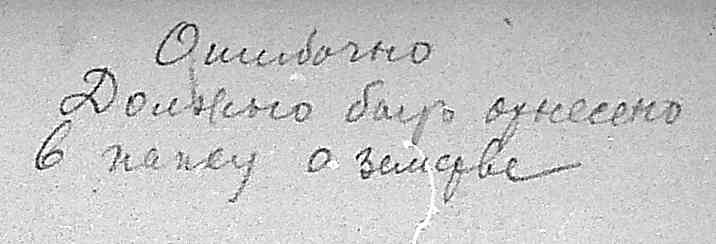 Ошибочно
Должно быть отнесено
в папку о земстве